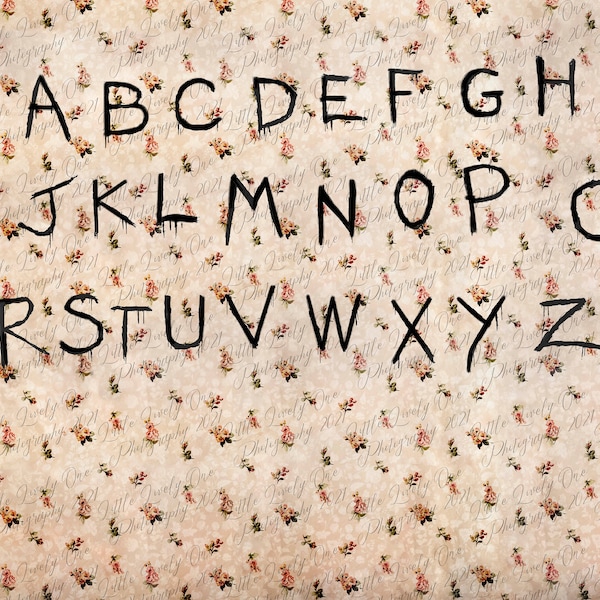 A B C D E F G H
J K L M N O P
R S T U V W X Y Z
Little Lovely One
Photography 2021